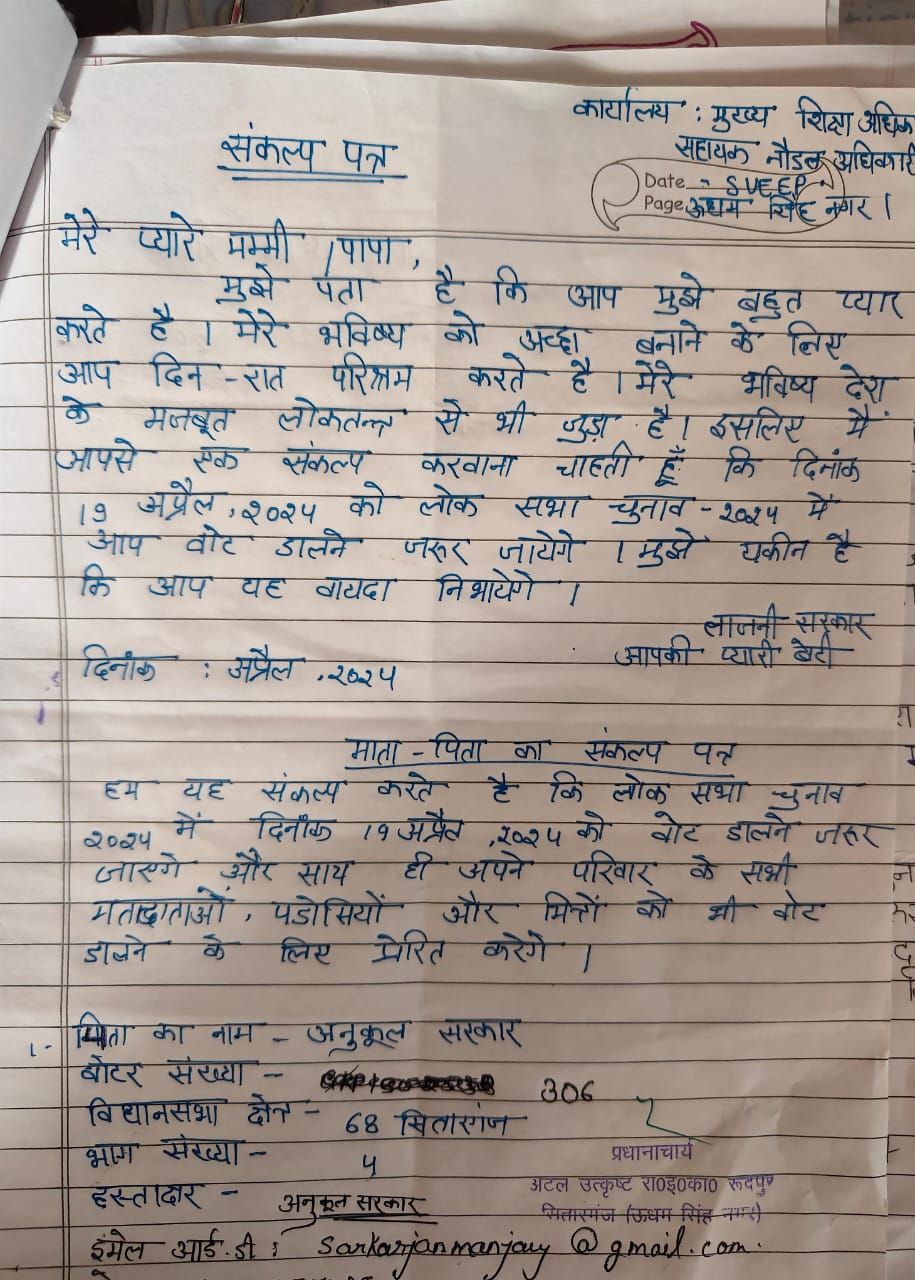 कार्यालय : मुख्य शिक्षा अधिक
सहायक नोडल अधिकारी
संकल्प पत्र
Date - SVEEP
Page ऊधम सिंह नगर ।
मेरे प्यारे मम्मी / पापा,
मुझे पता है कि आप मुझे बहुत प्यार
करते है । मेरे भविष्य को अच्छा बनाने के लिए
आप दिन - रात परिश्रम करते है । मेरे भविष्य देश
के मजबूत लोकतन्त्र से भी जुड़ा है । इसलिए मैं
आपसे एक संकल्प करवाना चाहती हूँ कि दिनांक
19 अप्रैल, २०२५ को लोक सभा चुनाव - २०२५ में
आप वोट डालने जरूर जायेगे । मुझे यकीन है
कि आप यह वायदा निभायेगे ।
लाजनी सरकार
आपकी प्यारी बेटी
दिनांक : अप्रैल, २०२५
माता - पिता का संकल्प पत्र
हम यह संकल्प करते है कि लोक सभा चुनाव
२०२५ में दिनांक 19 अप्रैल, २०२५ को वोट डालने जरूर
जाएगे और साथ ही अपने परिवार के सभी
मतादाताओं, पडोसियों और मित्रों को भी वोट
डालने के लिए प्रेरित करेगे ।
1.- पिता का नाम - अनुकूल सरकार
वोटर संख्या - 306
विधानसभा क्षेत्र - 68 सितारगंज
भाग संख्या - 5
प्रधानाचार्य
हस्ताक्षर - अनुकूल सरकार
अटल उत्कृष्ट रा०इ०का० रूदपुर
सितारगंज (ऊधम सिंह नगर)
ईमेल आई.डी : sarkarjanmanjay @ gmail.com.